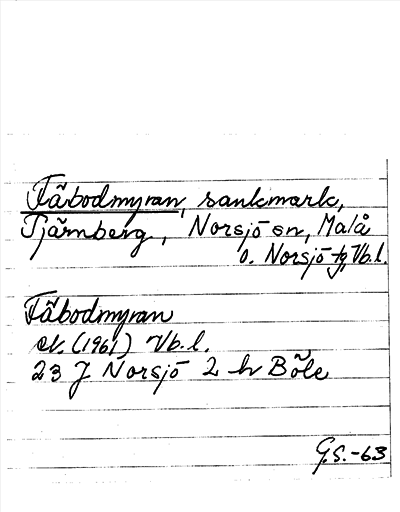 Fäbodmyran, sankmark,
Tjärnberg, Norsjö sn, Malå
o. Norsjö tg, Vb.l.
Fäbodmyran
(1961) Vb.l.
23 J Norsjö 2 h Böle
G.S.-63